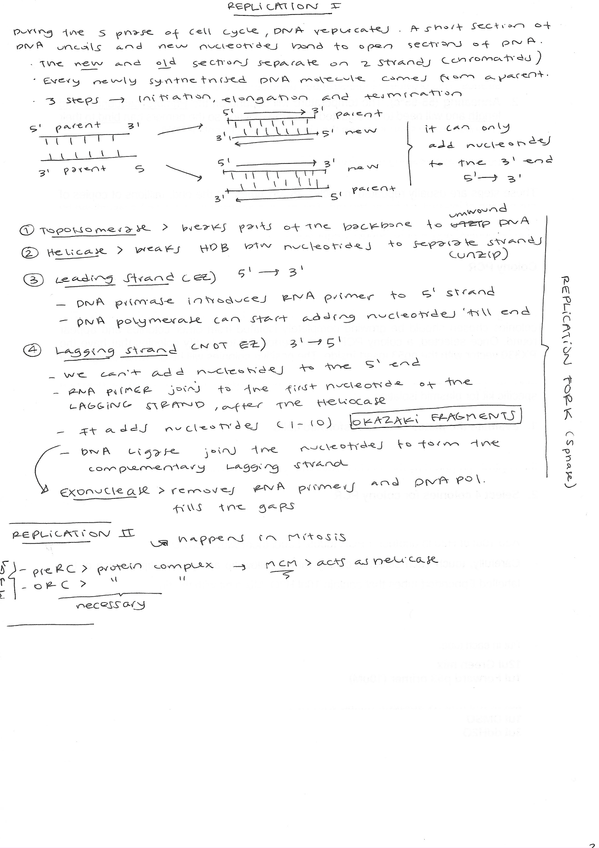 REPLICATION I
During the S phase of cell cycle, DNA replicates. A short section of
DNA uncoils and new nucleotides bond to open sections of DNA.
· The new and old sections separate on 2 strands (chromatids)
· Every newly synthetnised DNA molecule comes from a parent.
· 3 steps → Initiation, elongation and termination
5' parent 3'
3' parent 5
5' 3' parent
3' 5' new
5' 3' new
3' 5' parent
it can only
add nucleotides
to the 3' end
5' → 3'
unwound
① Topoisomerase > breaks parts of the backbone to DNA
② Helicase > breaks HDB btw nucleotides to separate strands
(unzip)
③ Leading strand (EZ) 5' → 3'
- DNA primase introduces RNA primer to 5' strand
- DNA polymerase can start adding nucleotides 'till end
④ Lagging strand (NOT EZ) 3' → 5'
- We can't add nucleotides to the 5' end
- RNA primer joins to the first nucleotide of the
LAGGING STRAND, after the Heliocase
- It adds nucleotides (1-10) OKAZAKI FRAGMENTS
- DNA Ligase joins the nucleotides to form the
complementary Lagging strand
Exonuclease > removes RNA primers and DNA pol.
fills the gaps
REPLICATION FORK (Sphase)
REPLICATION II
happens in Mitosis
- preRC > protein complex → MCM > acts as helicase
S
- ORC > " "
necessary